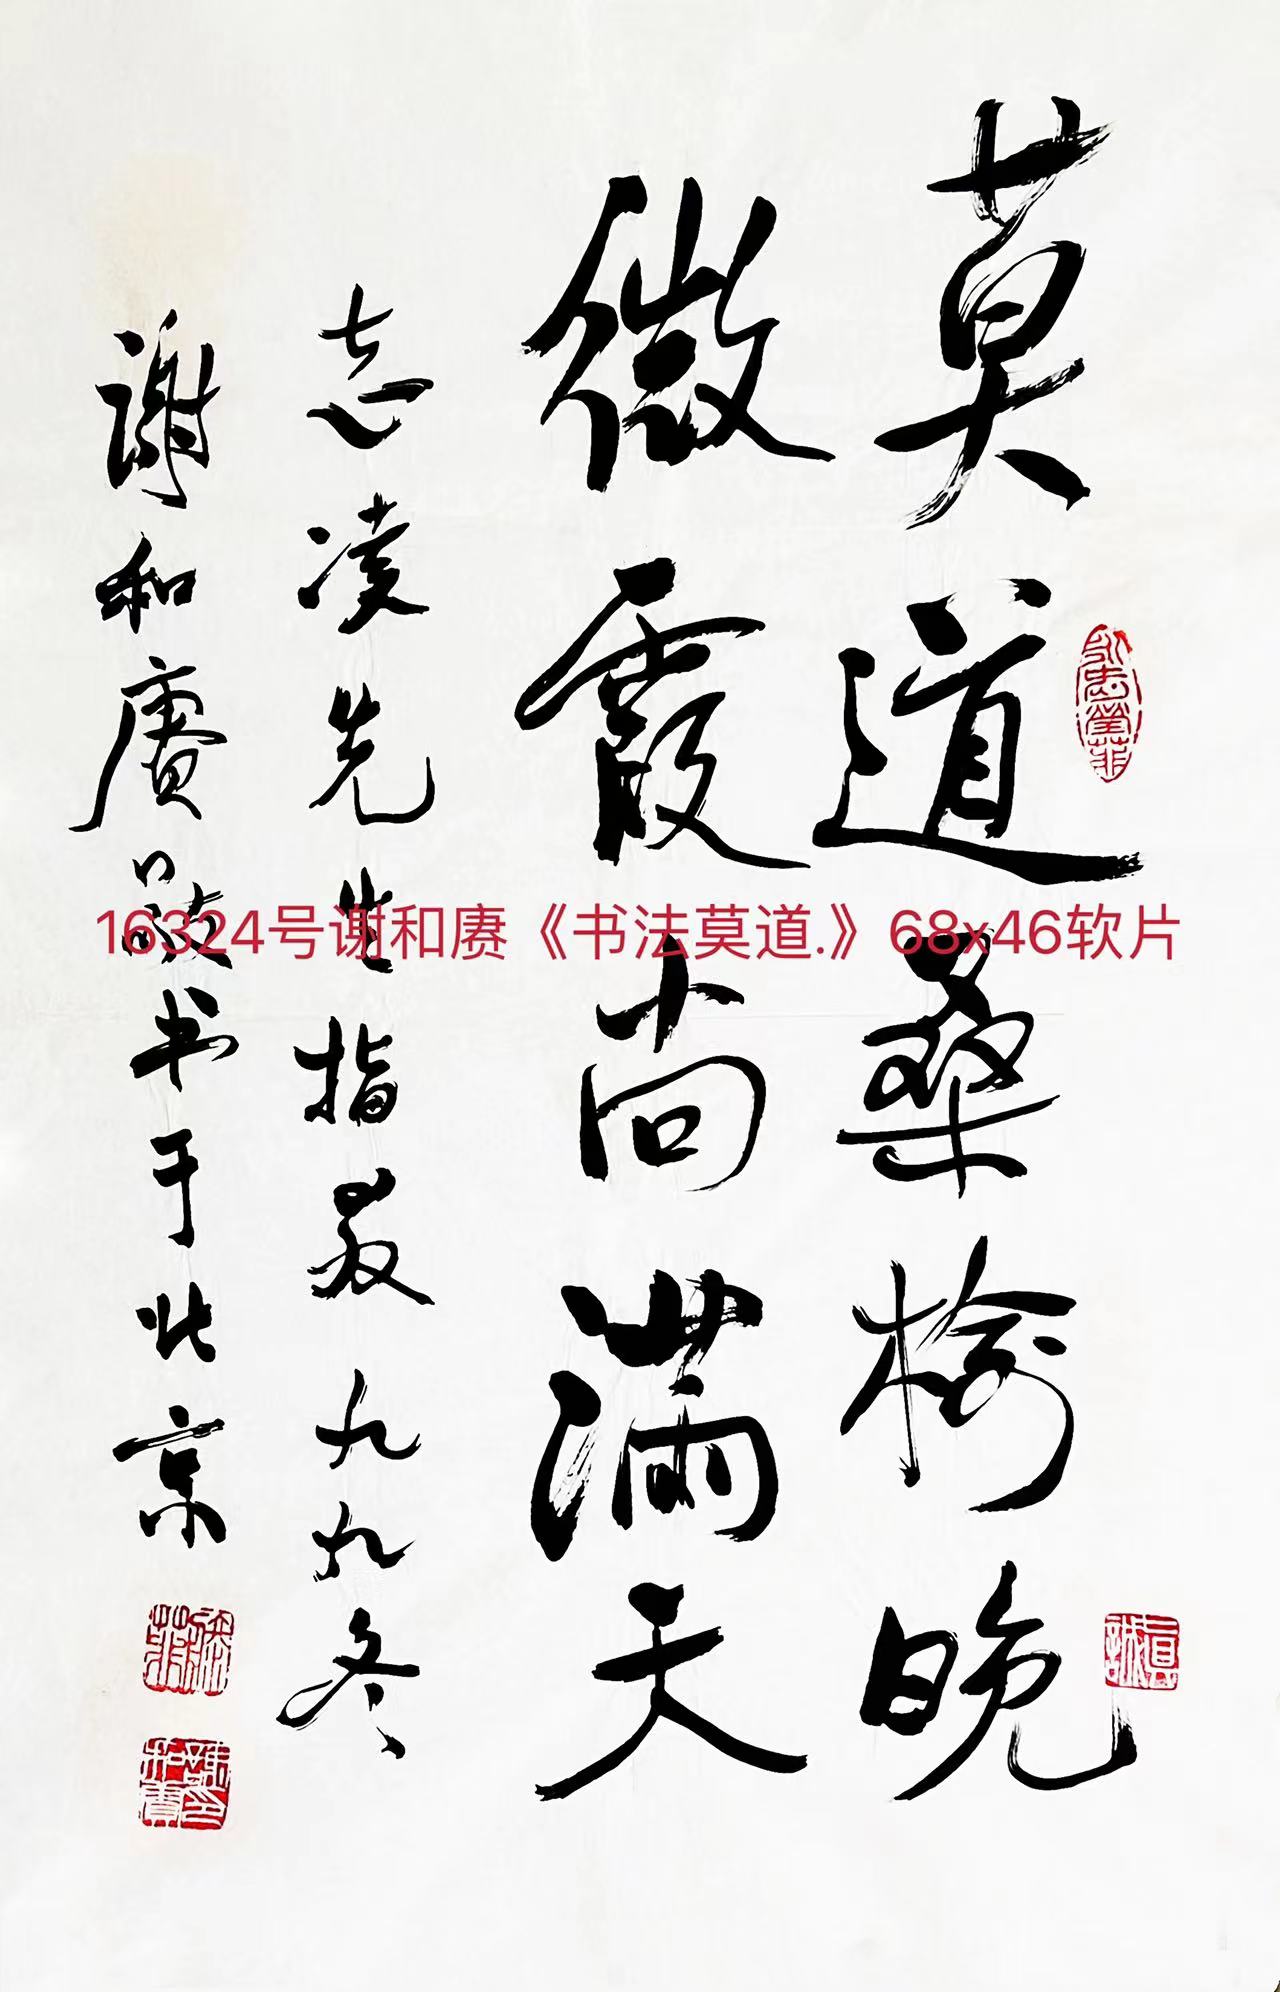 莫道桑榆晚
微霞尚满天
志凌先生指教 九九冬
谢和赓敬书于北京
16324号谢和赓《书法莫道.》68x46软片
真誠